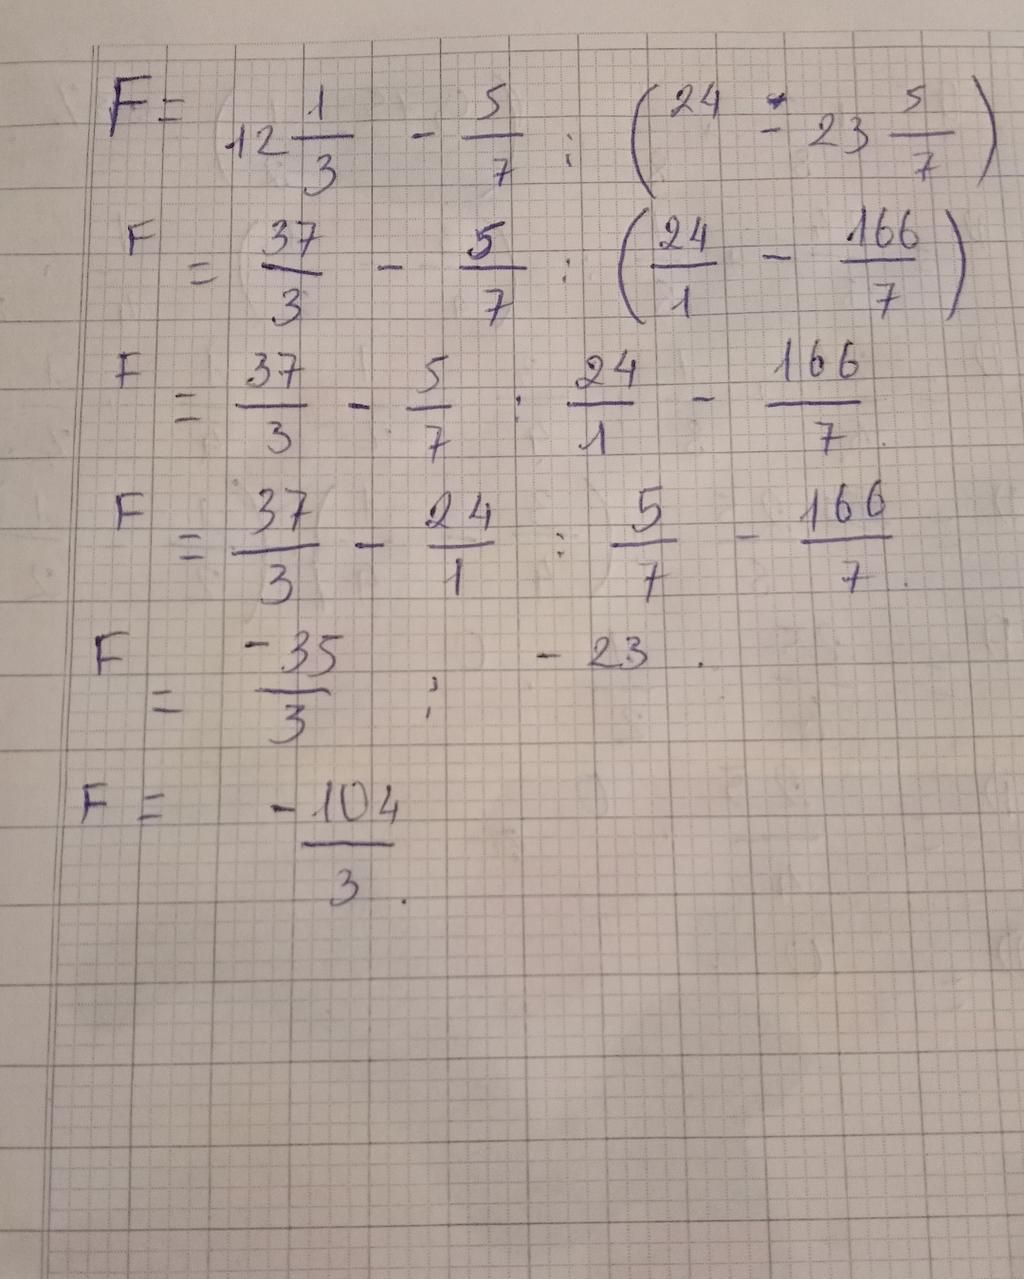 F = 12 1/3 - 5/7 : (24 - 23 5/7)
F = 37/3 - 5/7 : (24/1 - 166/7)
F = 37/3 - 5/7 : 24/1 - 166/7.
F = 37/3 - 24/1 : 5/7 - 166/7.
F = -35/3 : -23.
F = -104/3.